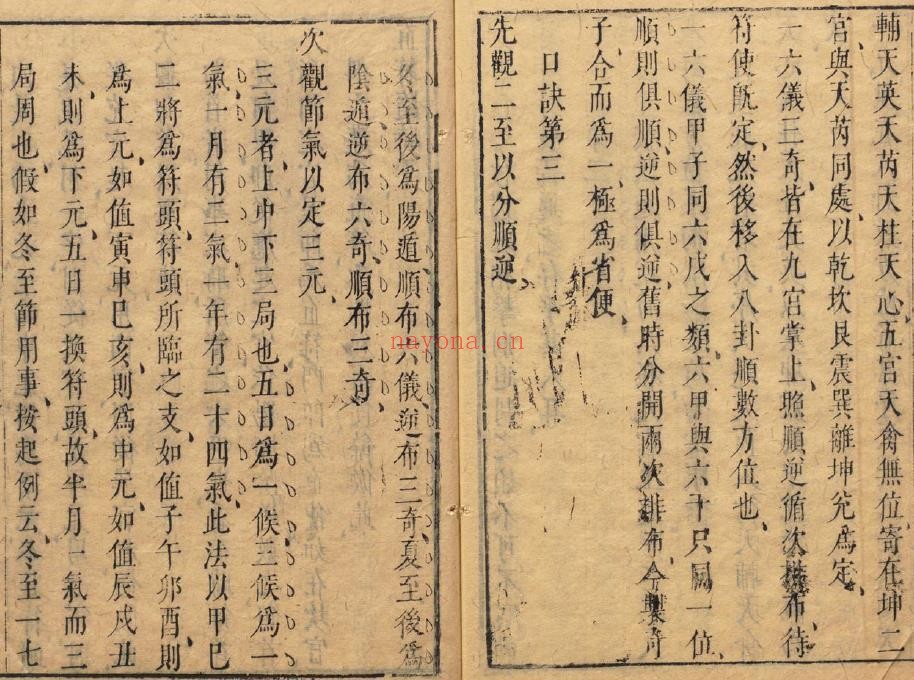 輔天英天芮天柱天心五宮天禽無位寄在坤二
宮與天芮同處以乾坎艮震巽離坤兊爲定
六儀三奇皆在九宮掌上照順逆循次排布待
符使旣定然後移入八卦順數方值也
六儀甲子同六戊之類六甲與六十只同一位
順則俱順逆則俱逆舊時分開兩次排布今製奇
子合而爲一極爲省便
口訣第三
先觀二至以分順逆
冬至後爲陽遁順布六儀逆布三奇夏至後爲
陰遁逆布六奇順布三奇
次觀節氣以定三元
三元者上中下三局也五日爲一候三候爲一
氣一月有二氣一年有二十四氣此法以甲巳
二將爲符頭符頭所臨之支如值子午夘酉則
爲上元如值寅申巳亥則爲中元如值辰戌丑
未則爲下元五日一換符頭故半月一氣而三
局周也假如冬至節用事按起例云冬至一七
nayona.cn